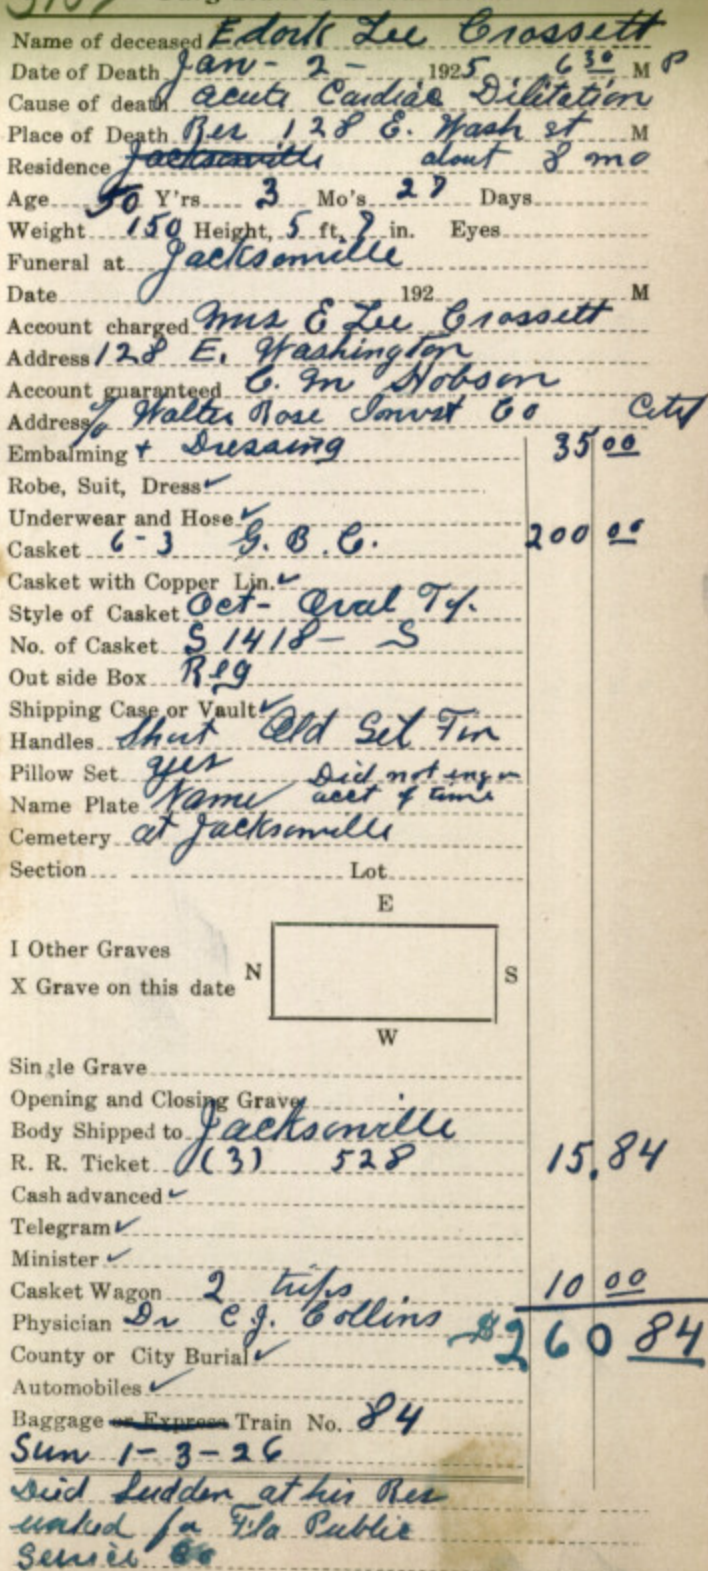 Name of deceased Edork Lee Crossett
Date of Death Jan - 2 - 1925 6 30 M P
Cause of death acute Cardiac Dilitation
Place of Death Res 128 E. Wash st M
Residence Jacksonville about 8 mo
Age 50 Y'rs 3 Mo's 27 Days
Weight 150 Height, 5 ft, 7 in. Eyes
Funeral at Jacksonville
Date 192 M
Account charged Mrs E Lee Crossett
Address 128 E. Washington
Account guaranteed C. M Hobson
Address % Walter Rose Invst Co City
Embalming + Dressing 35 00
Robe, Suit, Dress ✓
Underwear and Hose ✓
Casket 6-3 G. B. C. 200 00
Casket with Copper Lin. ✓
Style of Casket Oct - Oval
No. of Casket S 1418 - S
Out side Box Reg
Shipping Case or Vault ✓
Handles Short Old Sil
Pillow Set yes Did not eng on
Name Plate Name acct of time
Cemetery at Jacksonville
Section Lot
E
I Other Graves
N S
X Grave on this date
W
Single Grave
Opening and Closing Grave
Body Shipped to Jacksonville
R. R. Ticket (3) 528 15.84
Cash advanced ✓
Telegram ✓
Minister ✓
Casket Wagon 2 trips 10 00
Physician Dr C. J. Collins $260 84
County or City Burial ✓
Automobiles ✓
Baggage or Express Train No. 84
Sun 1-3-26
Died Sudden at his Res
worked for Fla Public
Service Co